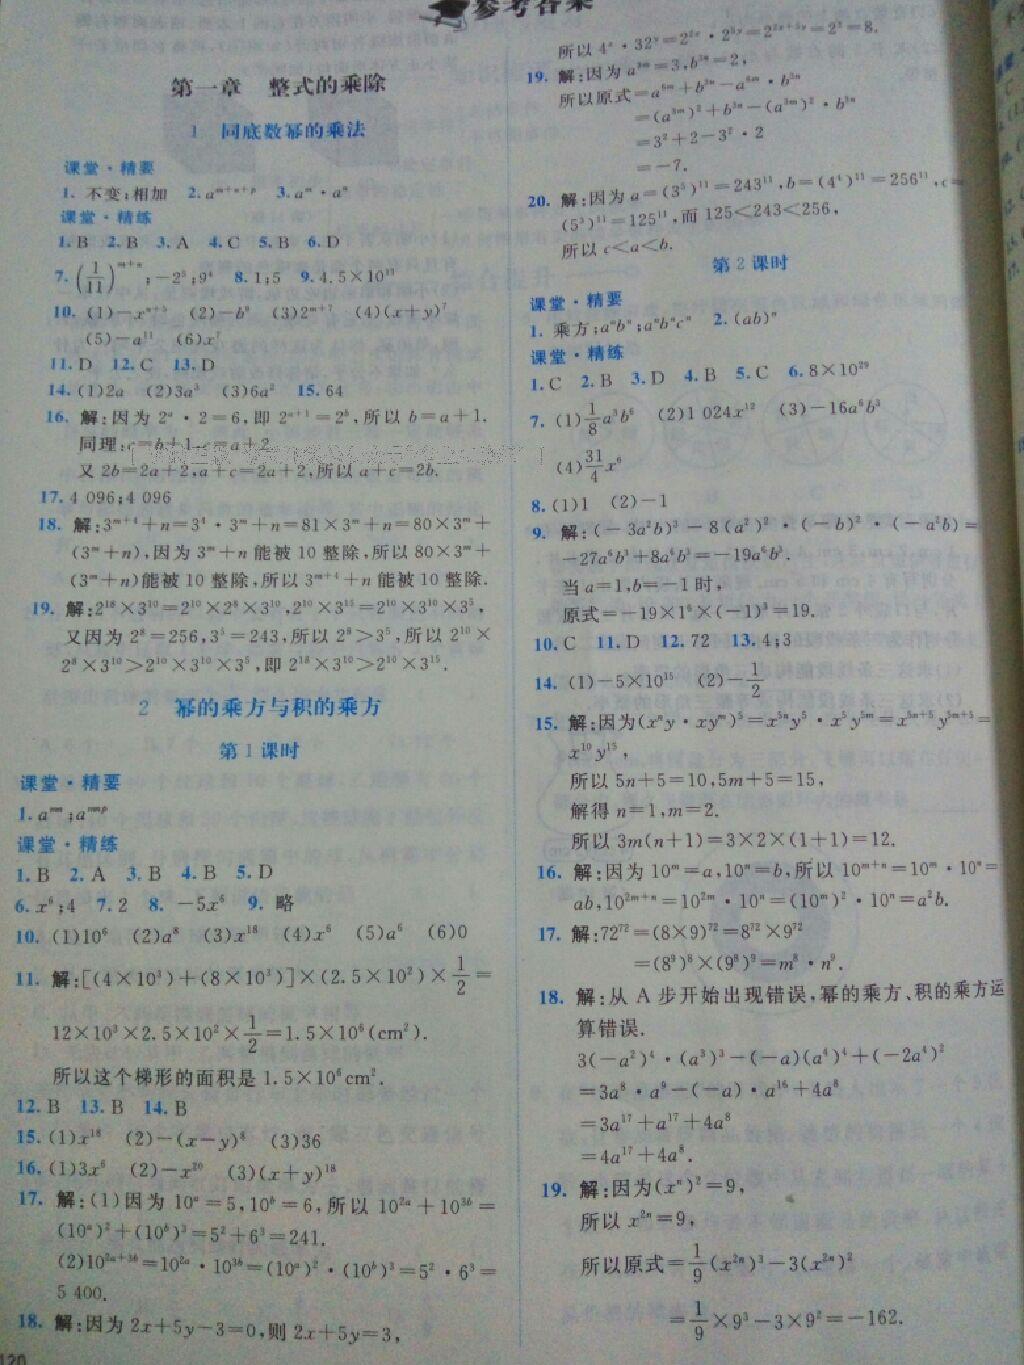 参考答案
第一章 整式的乘除
1 同底数幂的乘法
课堂·精要
1. 不变;相加 2. a^{m+n+p} 3. a^m·a^n
课堂·精练
1. B 2. B 3. A 4. C 5. B 6. D
7. (1/11)^{m+n};-2^5;9^4 8. 1;5 9. 4.5×10^{11}
10. (1)-x^{n+5} (2)-b^9 (3)2^{m+7} (4)(x+y)^7
(5)-a^{11} (6)x^7
11. D 12. C 13. D
14. (1)2a (2)3a^3 (3)6a^2 15. 64
16. 解:因为 2^a·2=6,即 2^{a+1}=2^b,所以 b=a+1.
同理:c=b+1,c=a+2
又 2b=2a+2,a+c=2a+2,所以 a+c=2b.
17. 4 096;4 096
18. 解:3^{m+4}+n=3^4·3^m+n=81×3^m+n=80×3^m+
(3^m+n),因为 3^m+n 能被 10 整除,所以 80×3^m+
(3^m+n)能被 10 整除,所以 3^{m+4}+n 能被 10 整除.
19. 解:2^{18}×3^{10}=2^{10}×2^8×3^{10},2^{10}×3^{15}=2^{10}×3^{10}×3^5,
又因为 2^8=256,3^5=243,所以 2^8>3^5,所以 2^{10}×
2^8×3^{10}>2^{10}×3^{10}×3^5,即 2^{18}×3^{10}>2^{10}×3^{15}.
2 幂的乘方与积的乘方
第 1 课时
课堂·精要
1. a^{mn};a^{mnp}
课堂·精练
1. B 2. A 3. B 4. B 5. D
6. x^6;4 7. 2 8. -5x^6 9. 略
10. (1)10^6 (2)a^8 (3)x^{18} (4)x^6 (5)a^6 (6)0
11. 解:[(4×10^3)+(8×10^3)]×(2.5×10^2)×1/2=
12×10^3×2.5×10^2×1/2=1.5×10^6(cm^2).
所以这个梯形的面积是 1.5×10^6cm^2.
12. B 13. B 14. B
15. (1)x^{18} (2)-(x-y)^8 (3)36
16. (1)3x^6 (2)-x^{20} (3)(x+y)^{18}
17. 解:(1)因为 10^a=5,10^b=6,所以 10^{2a}+10^{3b}=
(10^a)^2+(10^b)^3=5^2+6^3=241.
(2)10^{2a+3b}=10^{2a}·10^{3b}=(10^a)^2·(10^b)^3=5^2·6^3=
5 400.
18. 解:因为 2x+5y-3=0,则 2x+5y=3,
120
所以 4^x·32^y=2^{2x}·2^{5y}=2^{2x+5y}=2^3=8.
19. 解:因为 a^{3m}=3,b^{3n}=2,
所以原式=a^{6m}+b^{3n}-a^{6m}·b^{3n}
=(a^{3m})^2+b^{3n}-(a^{3m})^2·b^{3n}
=3^2+2-3^2·2
=-7.
20. 解:因为 a=(3^5)^{11}=243^{11},b=(4^4)^{11}=256^{11},c=
(5^3)^{11}=125^{11},而 125<243<256,
所以 c<a<b.
第 2 课时
课堂·精要
1. 乘方;a^nb^n;a^nb^nc^n 2. (ab)^n
课堂·精练
1. C 2. B 3. D 4. B 5. C 6. 8×10^{29}
7. (1)1/8a^3b^6 (2)1 024x^{12} (3)-16a^6b^3
(4)31/4x^6
8. (1)1 (2)-1
9. 解:(-3a^2b)^3-8(a^2)^2·(-b)^2·(-a^2b)=
-27a^6b^3+8a^6b^3=-19a^6b^3.
当 a=1,b=-1 时,
原式=-19×1^6×(-1)^3=19.
10. C 11. D 12. 72 13. 4;3
14. (1)-5×10^{15} (2)-1/2
15. 解:因为(x^ny·xy^m)^5=x^{5n}y^5·x^5y^{5m}=x^{5n+5}y^{5m+5}=
x^{10}y^{15},
所以 5n+5=10,5m+5=15,
解得 n=1,m=2.
所以 3m(n+1)=3×2×(1+1)=12.
16. 解:因为 10^m=a,10^n=b,所以 10^{m+n}=10^m·10^n=
ab,10^{2m+n}=10^{2m}·10^n=(10^m)^2·10^n=a^2b.
17. 解:72^{72}=(8×9)^{72}=8^{72}×9^{72}
=(8^9)^8×(9^8)^9=m^8·n^9.
18. 解:从 A 步开始出现错误,幂的乘方、积的乘方运
算错误.
3(-a^2)^4·(a^3)^3-(-a)(a^4)^4+(-2a^4)^2
=3a^8·a^9-(-a)·a^{16}+4a^8
=3a^{17}+a^{17}+4a^8
=4a^{17}+4a^8.
19. 解:因为(x^n)^2=9,
所以 x^{2n}=9,
所以原式=1/9(x^{2n})^3-3(x^{2n})^2
=1/9×9^3-3×9^2=-162.